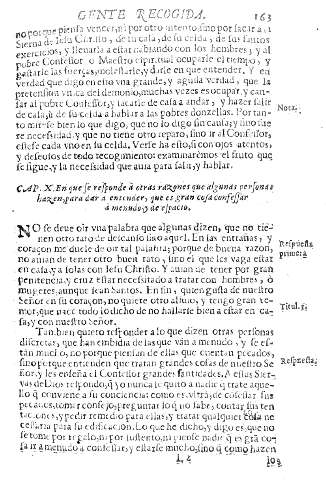 GENTE RECOGIDA. 163
no porque piensa vencer, ni por otro intento, sino por sacar a la
Sierva de Jesu Christo, de su casa, de su celda, de sus santos
exercicios, y llevarla a estar hablando con los hombres, y al
pobre Confessor o Maestro espiritual ocuparle el tiempo, y
gastarle las fuerças, molestarle, y darle en que entender. Y en
verdad que digo en esto vna grande, y aguda verdad, que la
pretensión vnica del demonio, muchas vezes es ocupar, y can-
sar al pobre Confessor, y sacarle de casa a andar, y hazer salir
de casa, ù de su celda a hablar a las pobres donzellas. Por tan-
to mirese bien lo que digo, que no lo digo sin causa; y sino fue
re necessidad, y que no tiene otro reparo, sino ir al Confessor,
estese cada vno en su celda. Verse ha esto, si con ojos atentos,
y desseosos de todo recogimiento examinaremos el fruto que
se sigue, y la necessidad que auia para salir, y hablar.
Nota.
CAP. X. En que se responde à otras razones que algunas personas
hazen, para dar a entender, que es gran cosa confessar
à menudo, y de espacio.
NO se deve oir vna palabra que algunas dizen, que no tie-
nen otro rato de descanso sino aquel. En las entrañas, y
coraçon me duele de oir tal palabra; porque de buena razon,
no auian de tener otro buen rato, sino el que les vaga estar
en casa, y a solas con Jesu Christo. Y auian de tener por gran
penitencia, y cruz estar necessitado a tratar con hombres, ò
mugeres, aunque sean Santos. En fin, quien gusta de nuestro
Señor en su coraçon, no quiere otro aliuio, y tengo gran te-
mor, que nace todo lo dicho de no hallarse bien a estar en ca-
sa, y con nuestro Señor.
Respuesta
primera
Tambien quiero responder a lo que dizen otras personas
discretas, que han embidia de las que van a menudo, y se es-
tan mucho, no porque piensan de ellas que cuentan pecados,
sino porque entienden que tratan grandes cosas de nuestro Se
ñor, y les enseña el Confessor grandes santidades. A estas Sier-
vas de Dios respondo, q̃ yo nunca le quito a nadie q̃ trate aque-
llo q̃ conviene a su conciencia: como es, vitrà, de cõfessar sus
pecados, tomar consejo, preguntar lo q̃ no sabe, contar sus ten
taciones, y pedir remedio para ellas, y tratar qualquier cosa ne
cessaria para su edificacion. Lo que he dicho, y digo es, que no
se tome por regalo, ni por sustento, ni piense nadie q̃ es grã co-
sa ir a menudo a confessar, y estarse mucho, sino q̃ como hazen
Respuesta.
L 4 los